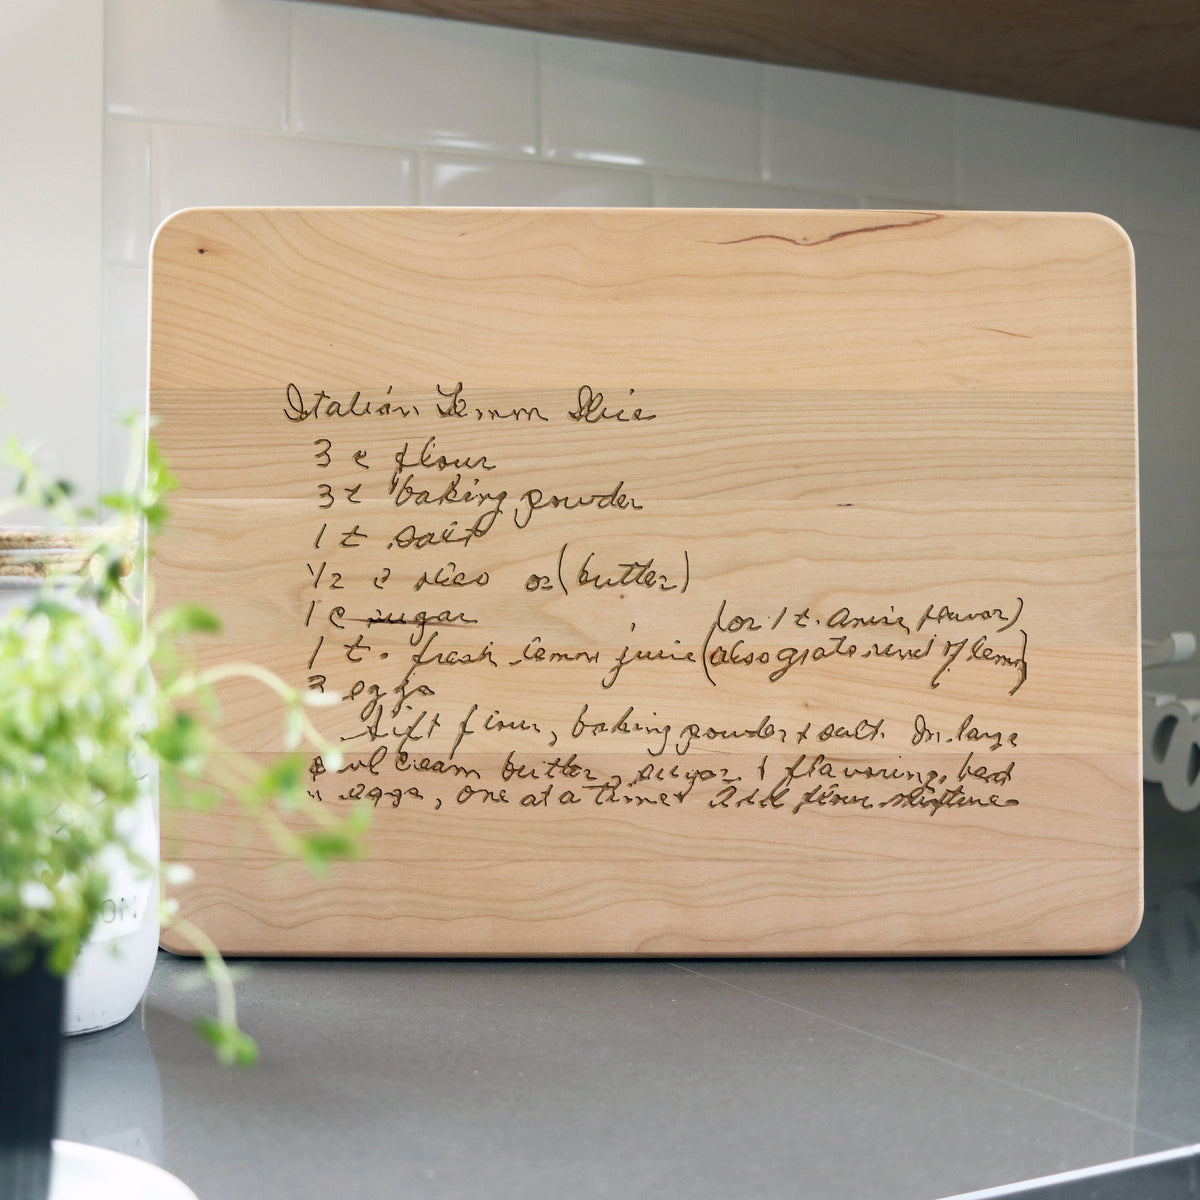 Italian Lemon Slice
3 c flour
3 t baking powder
1 t salt
1/2 c or (butter)
1 c sugar
(or 1 t. Anise flavor)
1 t. fresh lemon juice (also grate rind of lemon)
3 eggs
Sift flour, baking powder & salt. In large
cream butter, sugar & flavoring, beat
eggs, one at a time. Add flour mixture